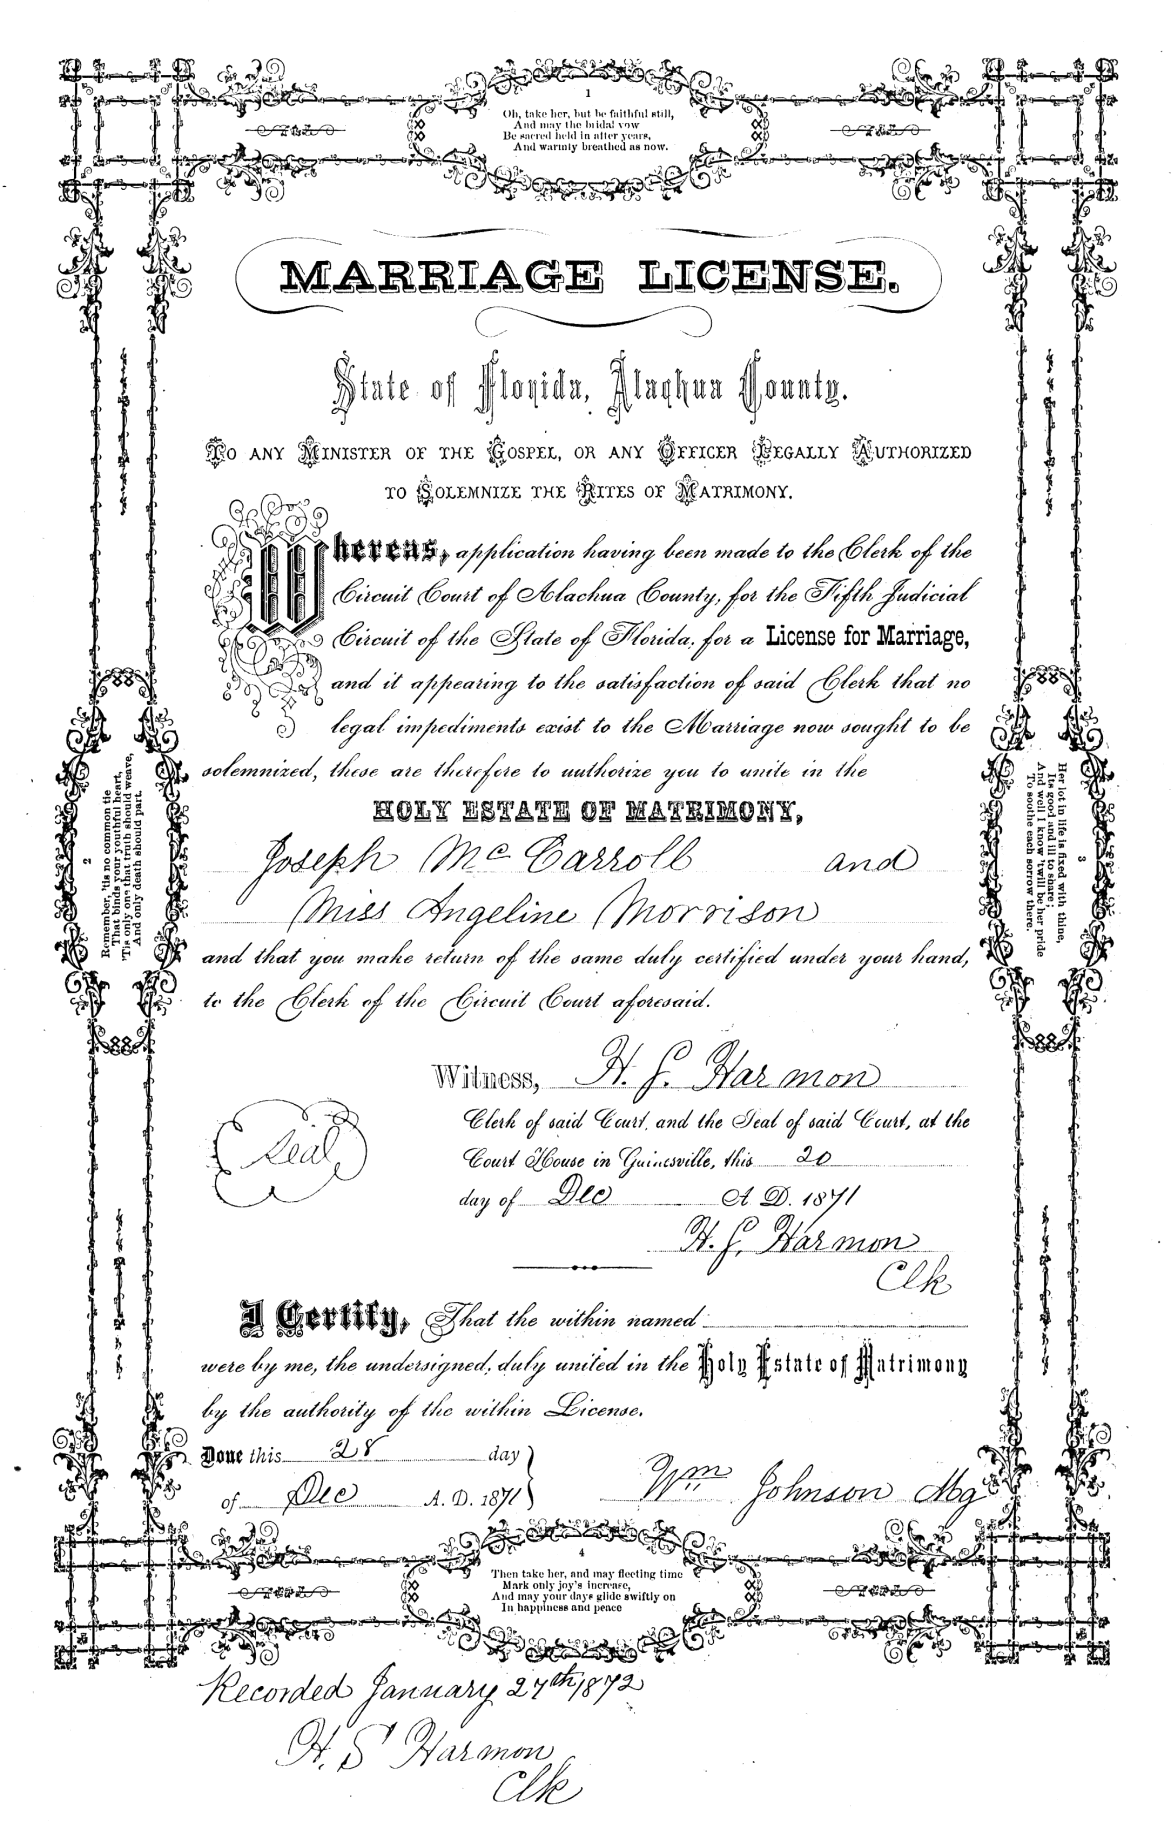 1
Oh, take her, but be faithful still,
And may the bridal vow
Be sacred held in after years,
And warmly breathed as now.
MARRIAGE LICENSE.
State of Florida, Alachua County.
TO ANY MINISTER OF THE GOSPEL, OR ANY OFFICER LEGALLY AUTHORIZED
TO SOLEMNIZE THE RITES OF MATRIMONY.
Whereas, application having been made to the Clerk of the
Circuit Court of Alachua County, for the Fifth Judicial
Circuit of the State of Florida, for a License for Marriage,
and it appearing to the satisfaction of said Clerk that no
legal impediments exist to the Marriage now sought to be
solemnized, these are therefore to authorize you to unite in the
HOLY ESTATE OF MATRIMONY,
Joseph McCarroll and
Miss Angeline Morrison
and that you make return of the same duly certified under your hand,
to the Clerk of the Circuit Court aforesaid.
2
Remember, 'tis no common tie
That binds your youthful heart,
'Tis only one that truth should weave,
And only death should part.
3
Her lot in life is fixed with thine,
Its good and ill to share;
And well I know 'twill be her pride
To soothe each sorrow there.
Witness, H. S. Harmon
Clerk of said Court, and the Seal of said Court, at the
Court House in Gainesville, this 20
day of Dec A. D. 1871
Seal
H. S. Harmon
Clk
I Certify, That the within named
were by me, the undersigned, duly united in the Holy Estate of Matrimony
by the authority of the within License.
Done this 28 day
of Dec A. D. 1871
Wm Johnson Mg
4
Then take her, and may fleeting time
Mark only joy's increase,
And may your days glide swiftly on
In happiness and peace
Recorded January 27th 1872
H. S Harmon
Clk